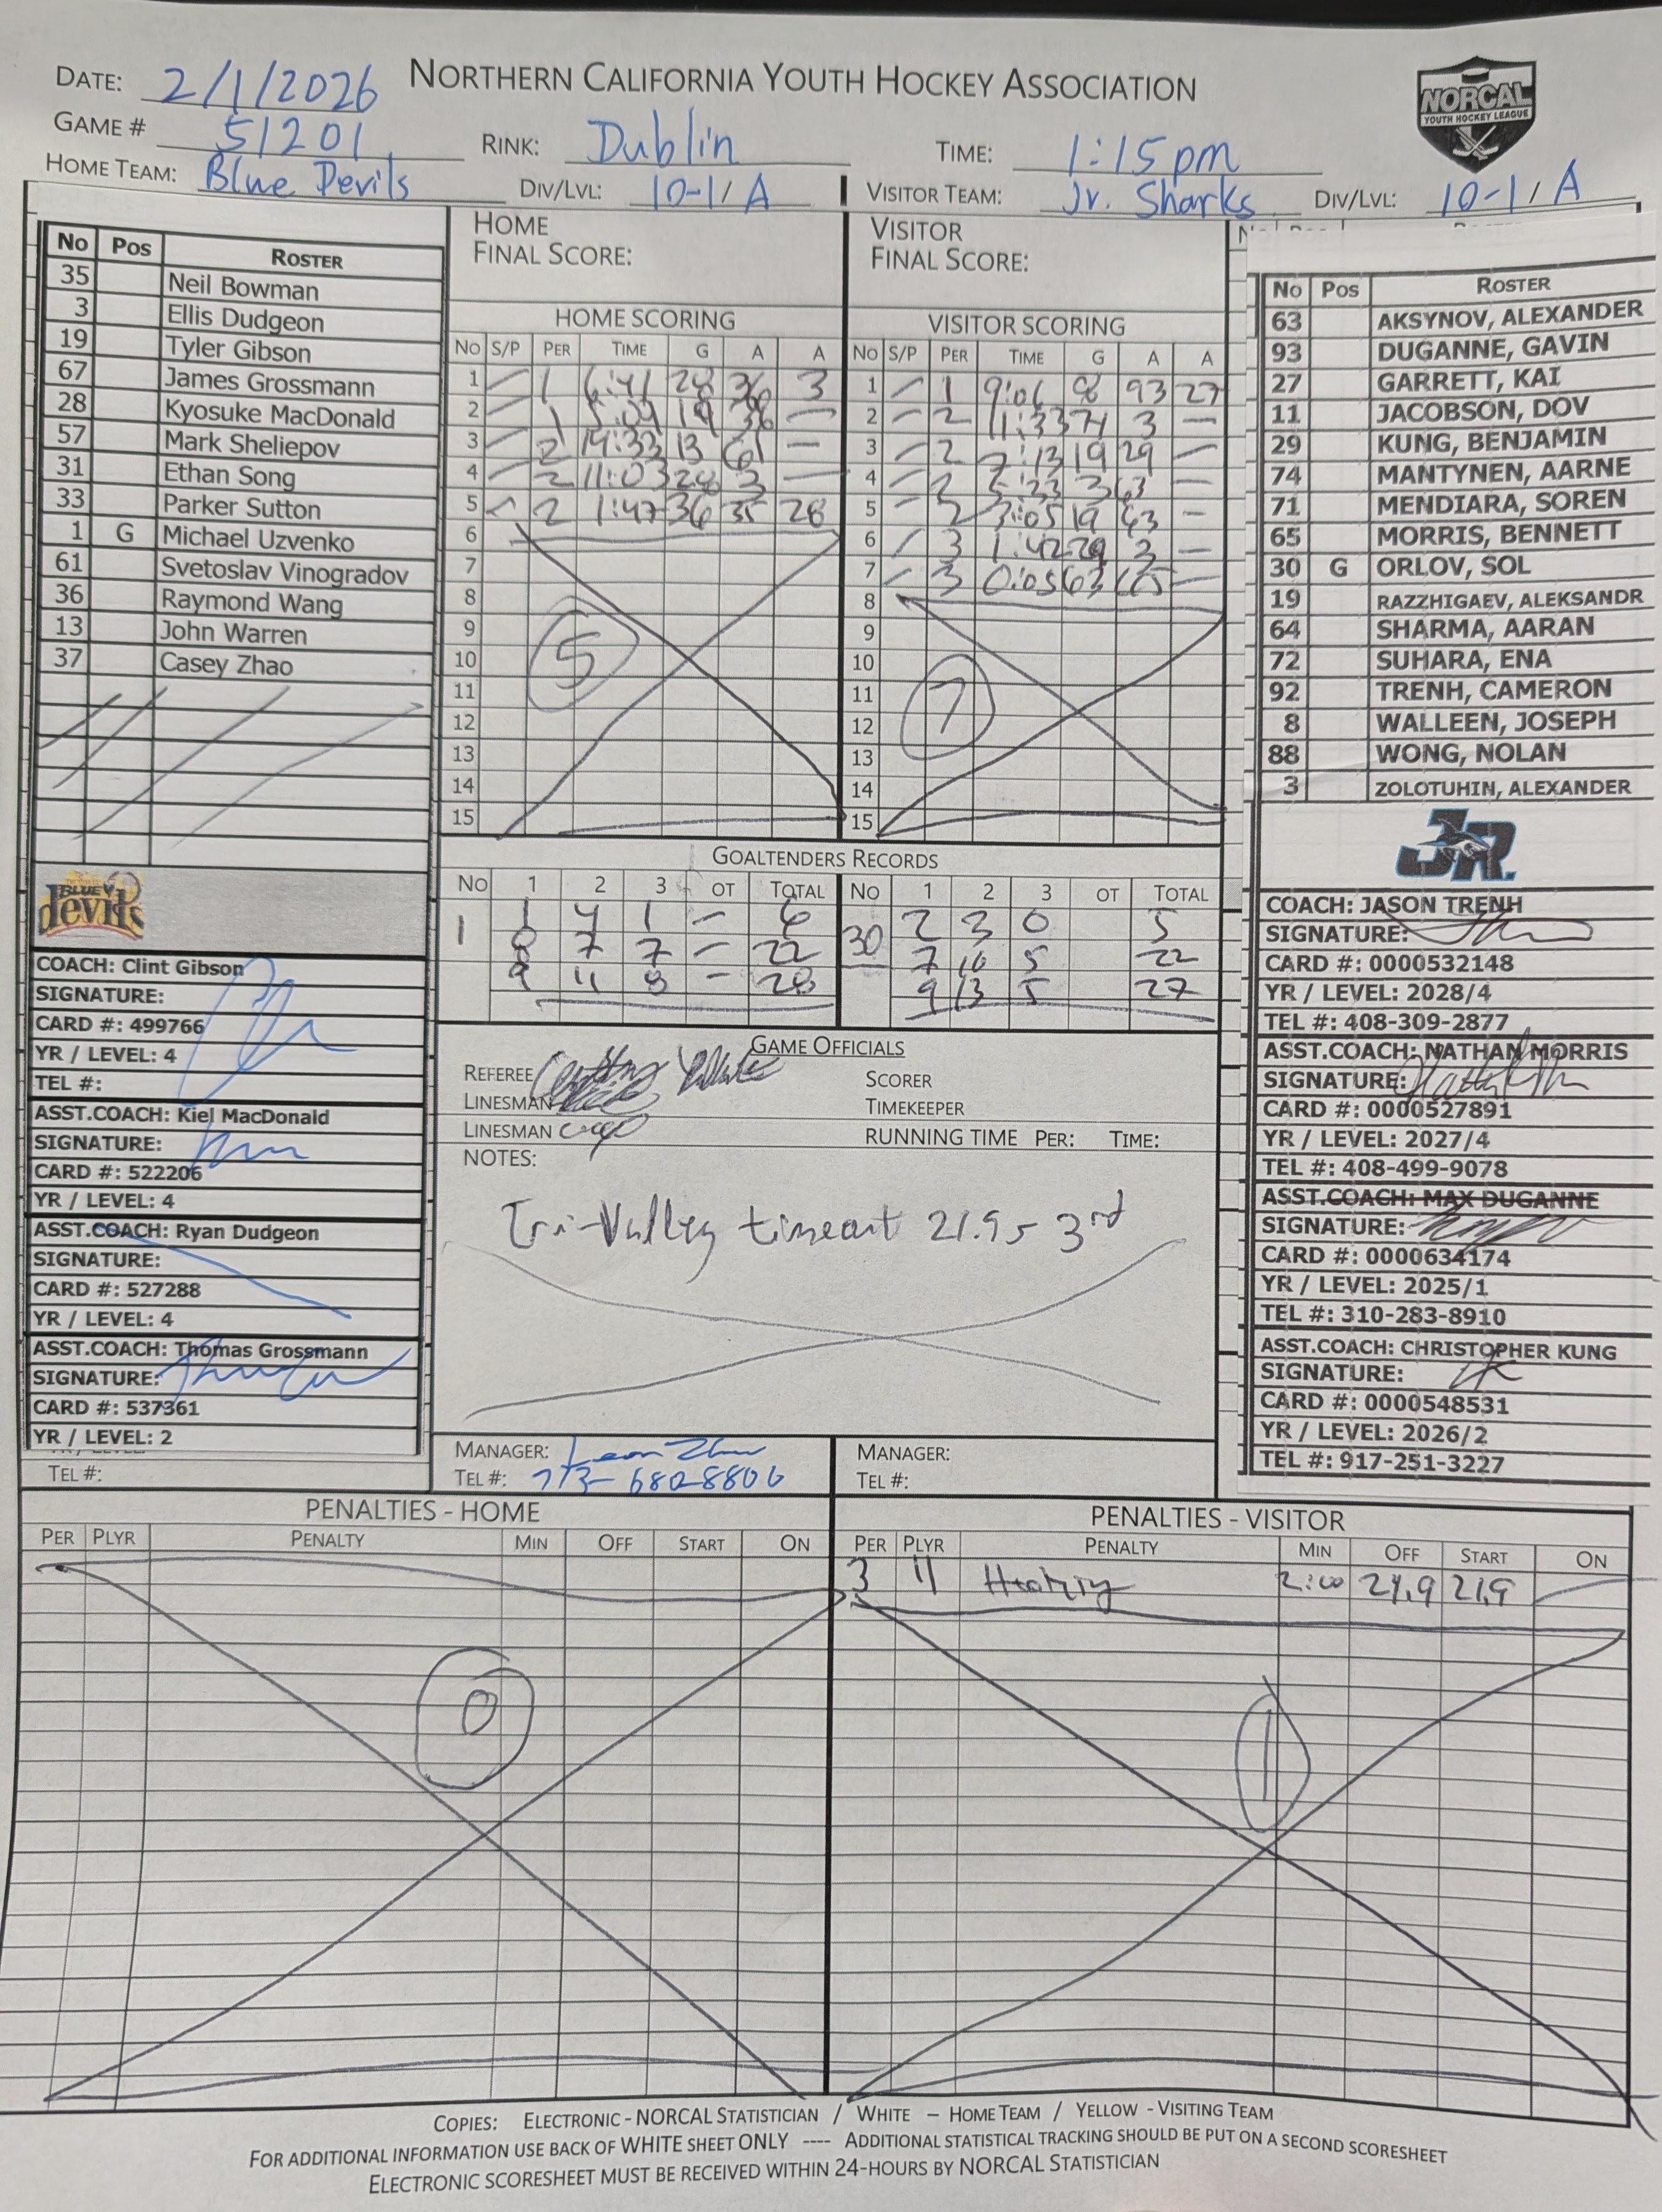 NORTHERN CALIFORNIA YOUTH HOCKEY ASSOCIATION
NORCAL
YOUTH HOCKEY LEAGUE
DATE: 2/1/2026
GAME # 51201 RINK: Dublin TIME: 1:15pm
HOME TEAM: Blue Devils DIV/LVL: 10-1/A VISITOR TEAM: Jr. Sharks DIV/LVL: 10-1/A
No Pos ROSTER
35 Neil Bowman
3 Ellis Dudgeon
19 Tyler Gibson
67 James Grossmann
28 Kyosuke MacDonald
57 Mark Sheliepov
31 Ethan Song
33 Parker Sutton
1 G Michael Uzvenko
61 Svetoslav Vinogradov
36 Raymond Wang
13 John Warren
37 Casey Zhao
BLUE devils
COACH: Clint Gibson
SIGNATURE:
CARD #: 499766
YR / LEVEL: 4
TEL #:
ASST.COACH: Kiel MacDonald
SIGNATURE:
CARD #: 522206
YR / LEVEL: 4
ASST.COACH: Ryan Dudgeon
SIGNATURE:
CARD #: 527288
YR / LEVEL: 4
ASST.COACH: Thomas Grossmann
SIGNATURE:
CARD #: 537361
YR / LEVEL: 2
TEL #:
HOME
FINAL SCORE:
HOME SCORING
No S/P PER TIME G A A
1 1 6:41 28 36 3
2 1 5:09 19 36 —
3 2 14:33 13 61 —
4 2 11:03 28 3 —
5 2 1:47 36 35 28
6
7
8
9
10
11
12
13
14
15
5
VISITOR
FINAL SCORE:
VISITOR SCORING
No S/P PER TIME G A A
1 1 9:06 8 93 27
2 2 11:33 71 3 —
3 2 7:13 19 29 —
4 2 5:33 3 63 —
5 2 3:05 19 63 —
6 3 1:42 29 3 —
7 3 0:05 63 65 —
8
9
10
11
12
13
14
15
7
GOALTENDERS RECORDS
No 1 2 3 OT TOTAL No 1 2 3 OT TOTAL
1 1 4 1 – 6 30 2 3 0 5
8 7 7 – 22 7 10 5 22
9 11 8 – 28 9 13 5 27
GAME OFFICIALS
REFEREE SCORER
LINESMAN TIMEKEEPER
LINESMAN RUNNING TIME PER: TIME:
NOTES:
Tri-Valley timeout 21.9s 3rd
MANAGER: Leon Zhao MANAGER:
TEL #: 713-680-8806 TEL #:
No Pos ROSTER
63 AKSYNOV, ALEXANDER
93 DUGANNE, GAVIN
27 GARRETT, KAI
11 JACOBSON, DOV
29 KUNG, BENJAMIN
74 MANTYNEN, AARNE
71 MENDIARA, SOREN
65 MORRIS, BENNETT
30 G ORLOV, SOL
19 RAZZHIGAEV, ALEKSANDR
64 SHARMA, AARAN
72 SUHARA, ENA
92 TRENH, CAMERON
8 WALLEEN, JOSEPH
88 WONG, NOLAN
3 ZOLOTUHIN, ALEXANDER
JR.
COACH: JASON TRENH
SIGNATURE:
CARD #: 0000532148
YR / LEVEL: 2028/4
TEL #: 408-309-2877
ASST.COACH: NATHAN MORRIS
SIGNATURE:
CARD #: 0000527891
YR / LEVEL: 2027/4
TEL #: 408-499-9078
ASST.COACH: MAX DUGANNE
SIGNATURE:
CARD #: 0000634174
YR / LEVEL: 2025/1
TEL #: 310-283-8910
ASST.COACH: CHRISTOPHER KUNG
SIGNATURE:
CARD #: 0000548531
YR / LEVEL: 2026/2
TEL #: 917-251-3227
PENALTIES - HOME
PER PLYR PENALTY MIN OFF START ON
0
PENALTIES - VISITOR
PER PLYR PENALTY MIN OFF START ON
3 11 2:00 21.9 21.9
1
COPIES: ELECTRONIC - NORCAL STATISTICIAN / WHITE – HOME TEAM / YELLOW - VISITING TEAM
FOR ADDITIONAL INFORMATION USE BACK OF WHITE SHEET ONLY ---- ADDITIONAL STATISTICAL TRACKING SHOULD BE PUT ON A SECOND SCORESHEET
ELECTRONIC SCORESHEET MUST BE RECEIVED WITHIN 24-HOURS BY NORCAL STATISTICIAN